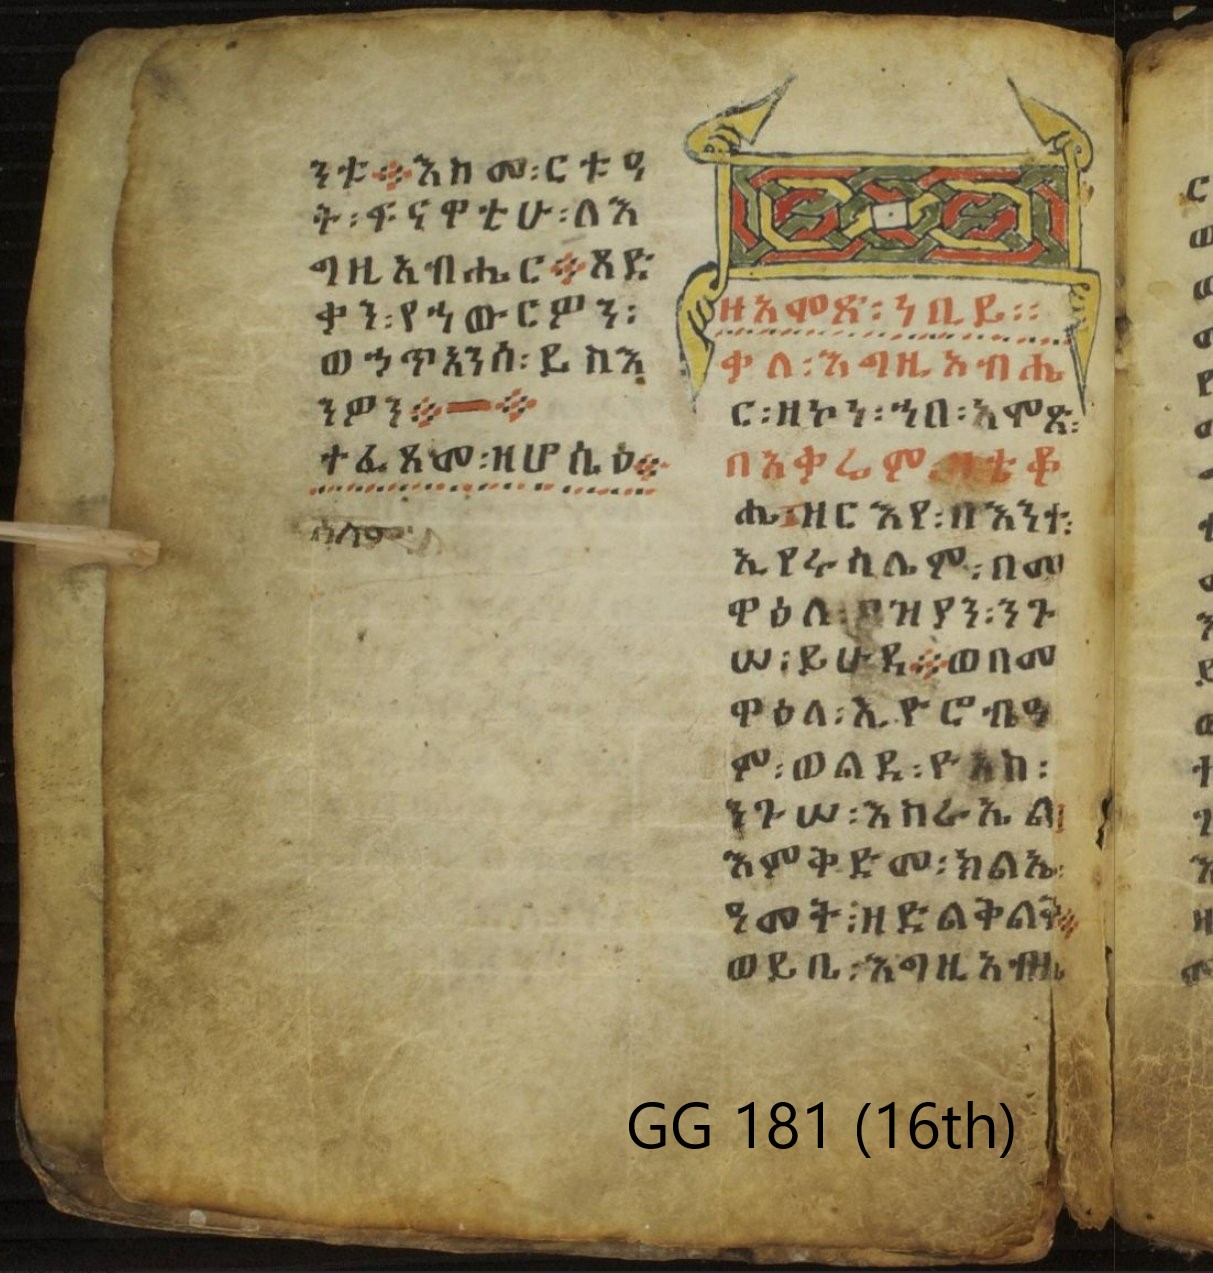 ንቱ ፨ እስመ ፡ ርቱዓ
ት ፡ ፍናዋቲሁ ፡ ለእ
ግዚአብሔር ፨ ጻድ
ቃን ፡ የሐውርዎን ፡
ወኃጥአንሰ ፡ ይስእ
ንዎን ፨ — ፨
ተፈጸመ ፡ ዘሆሴዕ ፨
ሰላም ፡
ዘአሞጽ ፡ ነቢይ ፡ ፡
ቃለ ፡ እግዚአብሔ
ር ፡ ዘኮነ ፡ ኀበ ፡ አሞጽ ፡
በአቃሬም ፡ ዘቴቆ
ሔ ፡ ዘርእየ ፡ በእንተ ፡
ኢየሩሳሌም ፡ በመ
ዋዕለ ፡ ዖዝያን ፡ ንጉ
ሠ ፡ ይሁዳ ፨ ወበመ
ዋዕለ ፡ ኢዮሮብዓ
ም ፡ ወልደ ፡ ዮአስ ፡
ንጉሠ ፡ እስራኤል ፡
እምቅድመ ፡ ክልኤ ፡
ዓመት ፡ ዘድልቅልቅ ፨
ወይቤ ፡ እግዚአብሔ
GG 181 (16th)